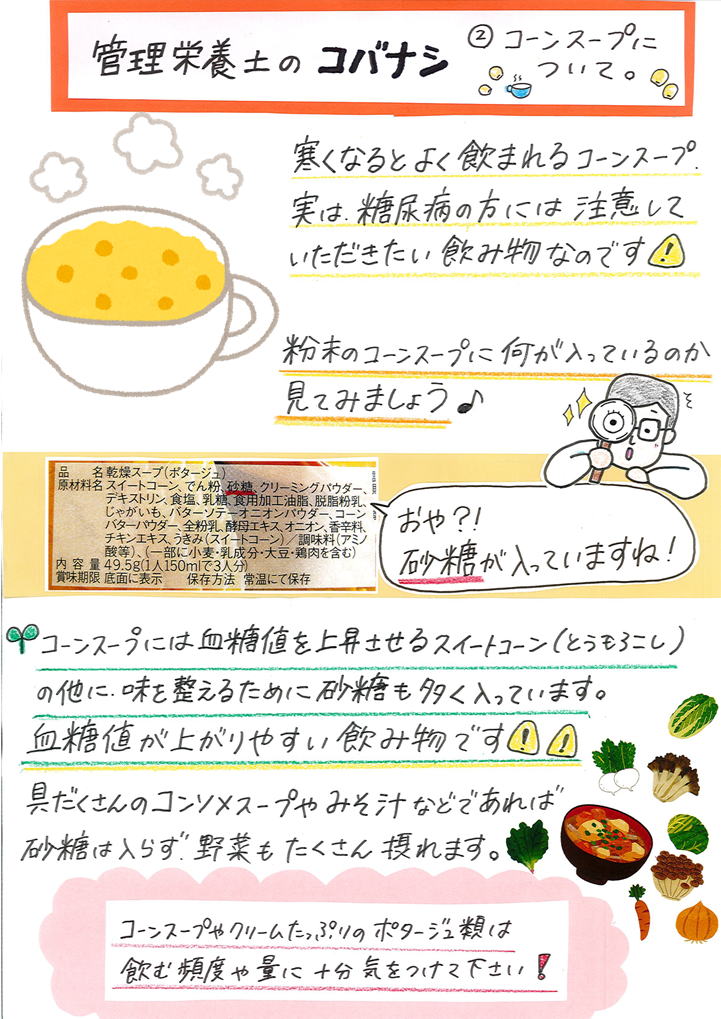 管理栄養士の コバナシ ② コーンスープに
ついて。
寒くなるとよく飲まれるコーンスープ.
実は、糖尿病の方には注意して
いただきたい飲み物なのです
粉末のコーンスープに何が入っているのか
見てみましょう♪
品 名 乾燥スープ(ポタージュ)
原材料名 スイートコーン、でん粉、砂糖、クリーミングパウダー、
デキストリン、食塩、乳糖、食用加工油脂、脱脂粉乳、
じゃがいも、バターソテーオニオンパウダー、コーン
バターパウダー、全粉乳、酵母エキス、オニオン、香辛料、
チキンエキス、うきみ(スイートコーン)/調味料(アミノ
酸等)、(一部に小麦・乳成分・大豆・鶏肉を含む)
内 容 量 49.5g(1人150mlで3人分)
賞味期限 底面に表示 保存方法 常温にて保存
おや?!
砂糖が入っていますね!
コーンスープには血糖値を上昇させるスイートコーン(とうもろこし)
の他に、味を整えるために砂糖も多く入っています。
血糖値が上がりやすい飲み物です
具だくさんのコンソメスープやみそ汁などであれば
砂糖は入らず、野菜もたくさん摂れます。
コーンスープやクリームたっぷりのポタージュ類は
飲む頻度や量に十分気をつけて下さい!